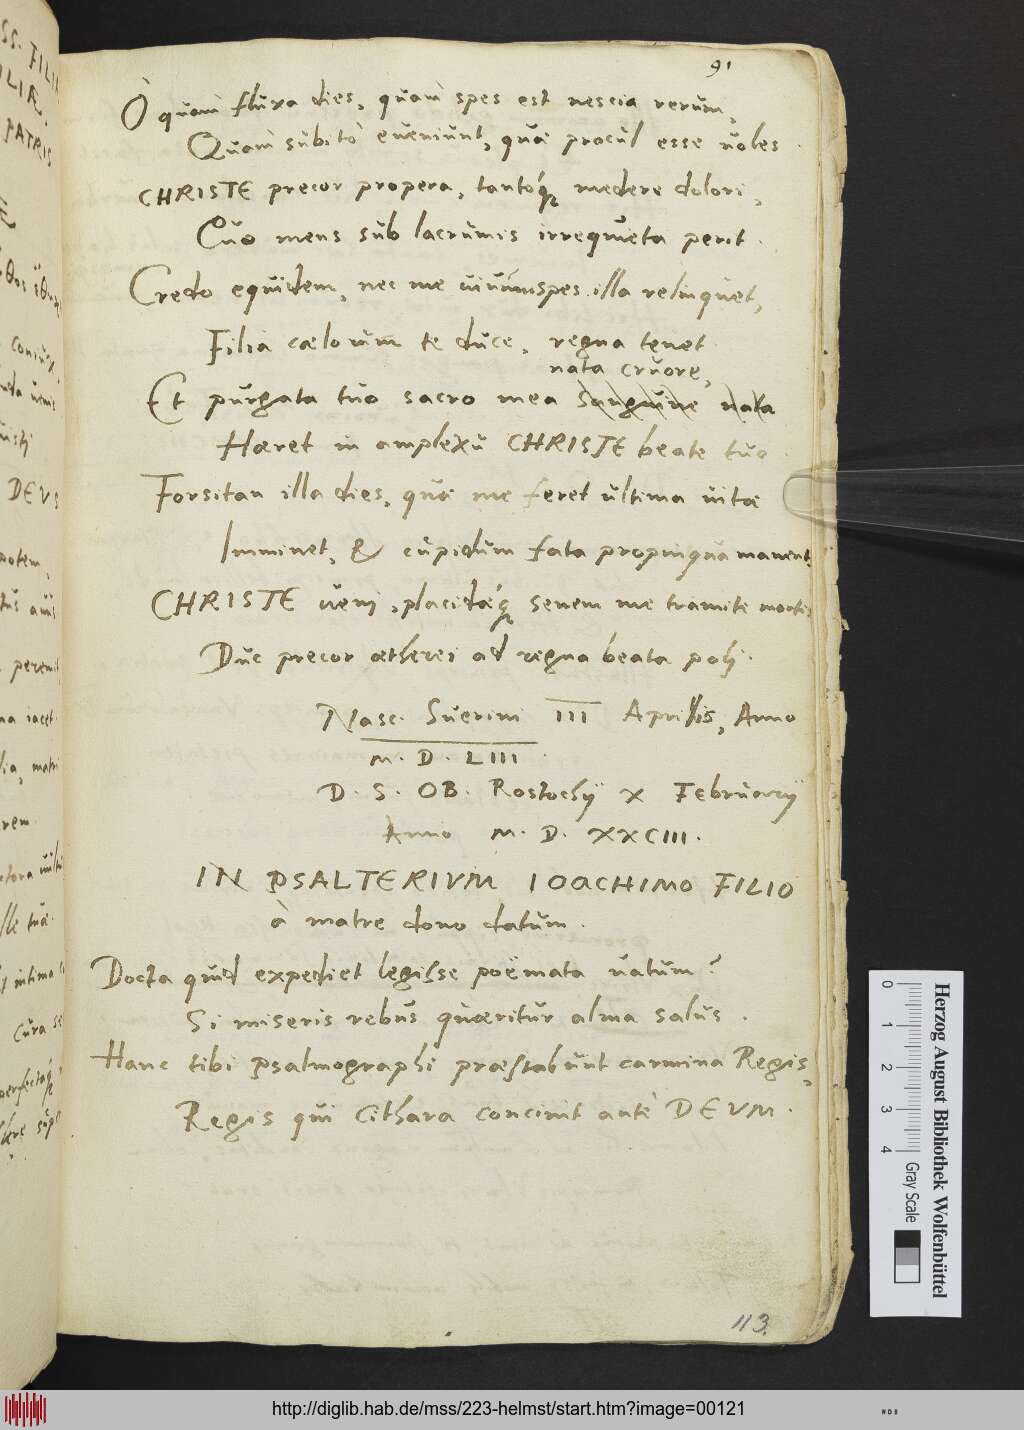 91
O quam fluxa dies, quam spes est nescia rerum,
Quam subito eveniunt, quae procul esse voles.
CHRISTE precor propera, tantoq́ue medere dolori,
Quo mens sub lacrumis irrequieta perit.
Credo equidem, nec me vivum spes illa relinquet,
Filia caelorum te duce, regna tenet.
nata cruore,
Et purgata tuo sacro mea sanguine nata
Haeret in amplexu CHRISTE beate tuo.
Forsitan illa dies, quae me feret ultima vitae
Imminet, & cupidum fata propinqua manent.
CHRISTE veni, placidaeq́ue senem me tramite mortis
Duc precor aetherei ad regna beata polj.
Nasc. Suerini III Aprillis, Anno
M. D. LIII.
D. S. OB. Rostochij X Februarij
Anno M. D. XXCIII.
IN PSALTERIVM IOACHIMO FILIO
à matre dono datum.
Docta quid expediet legisse poëmata vatum?
Si miseris rebus quaeritur alma salus.
Hanc tibi psalmographi praestabunt carmina Regis,
Regis qui Cithara concinit ante DEVM.
113.
Herzog August Bibliothek Wolfenbüttel
0 1 2 3 4
Gray Scale
http://diglib.hab.de/mss/223-helmst/start.htm?image=00121